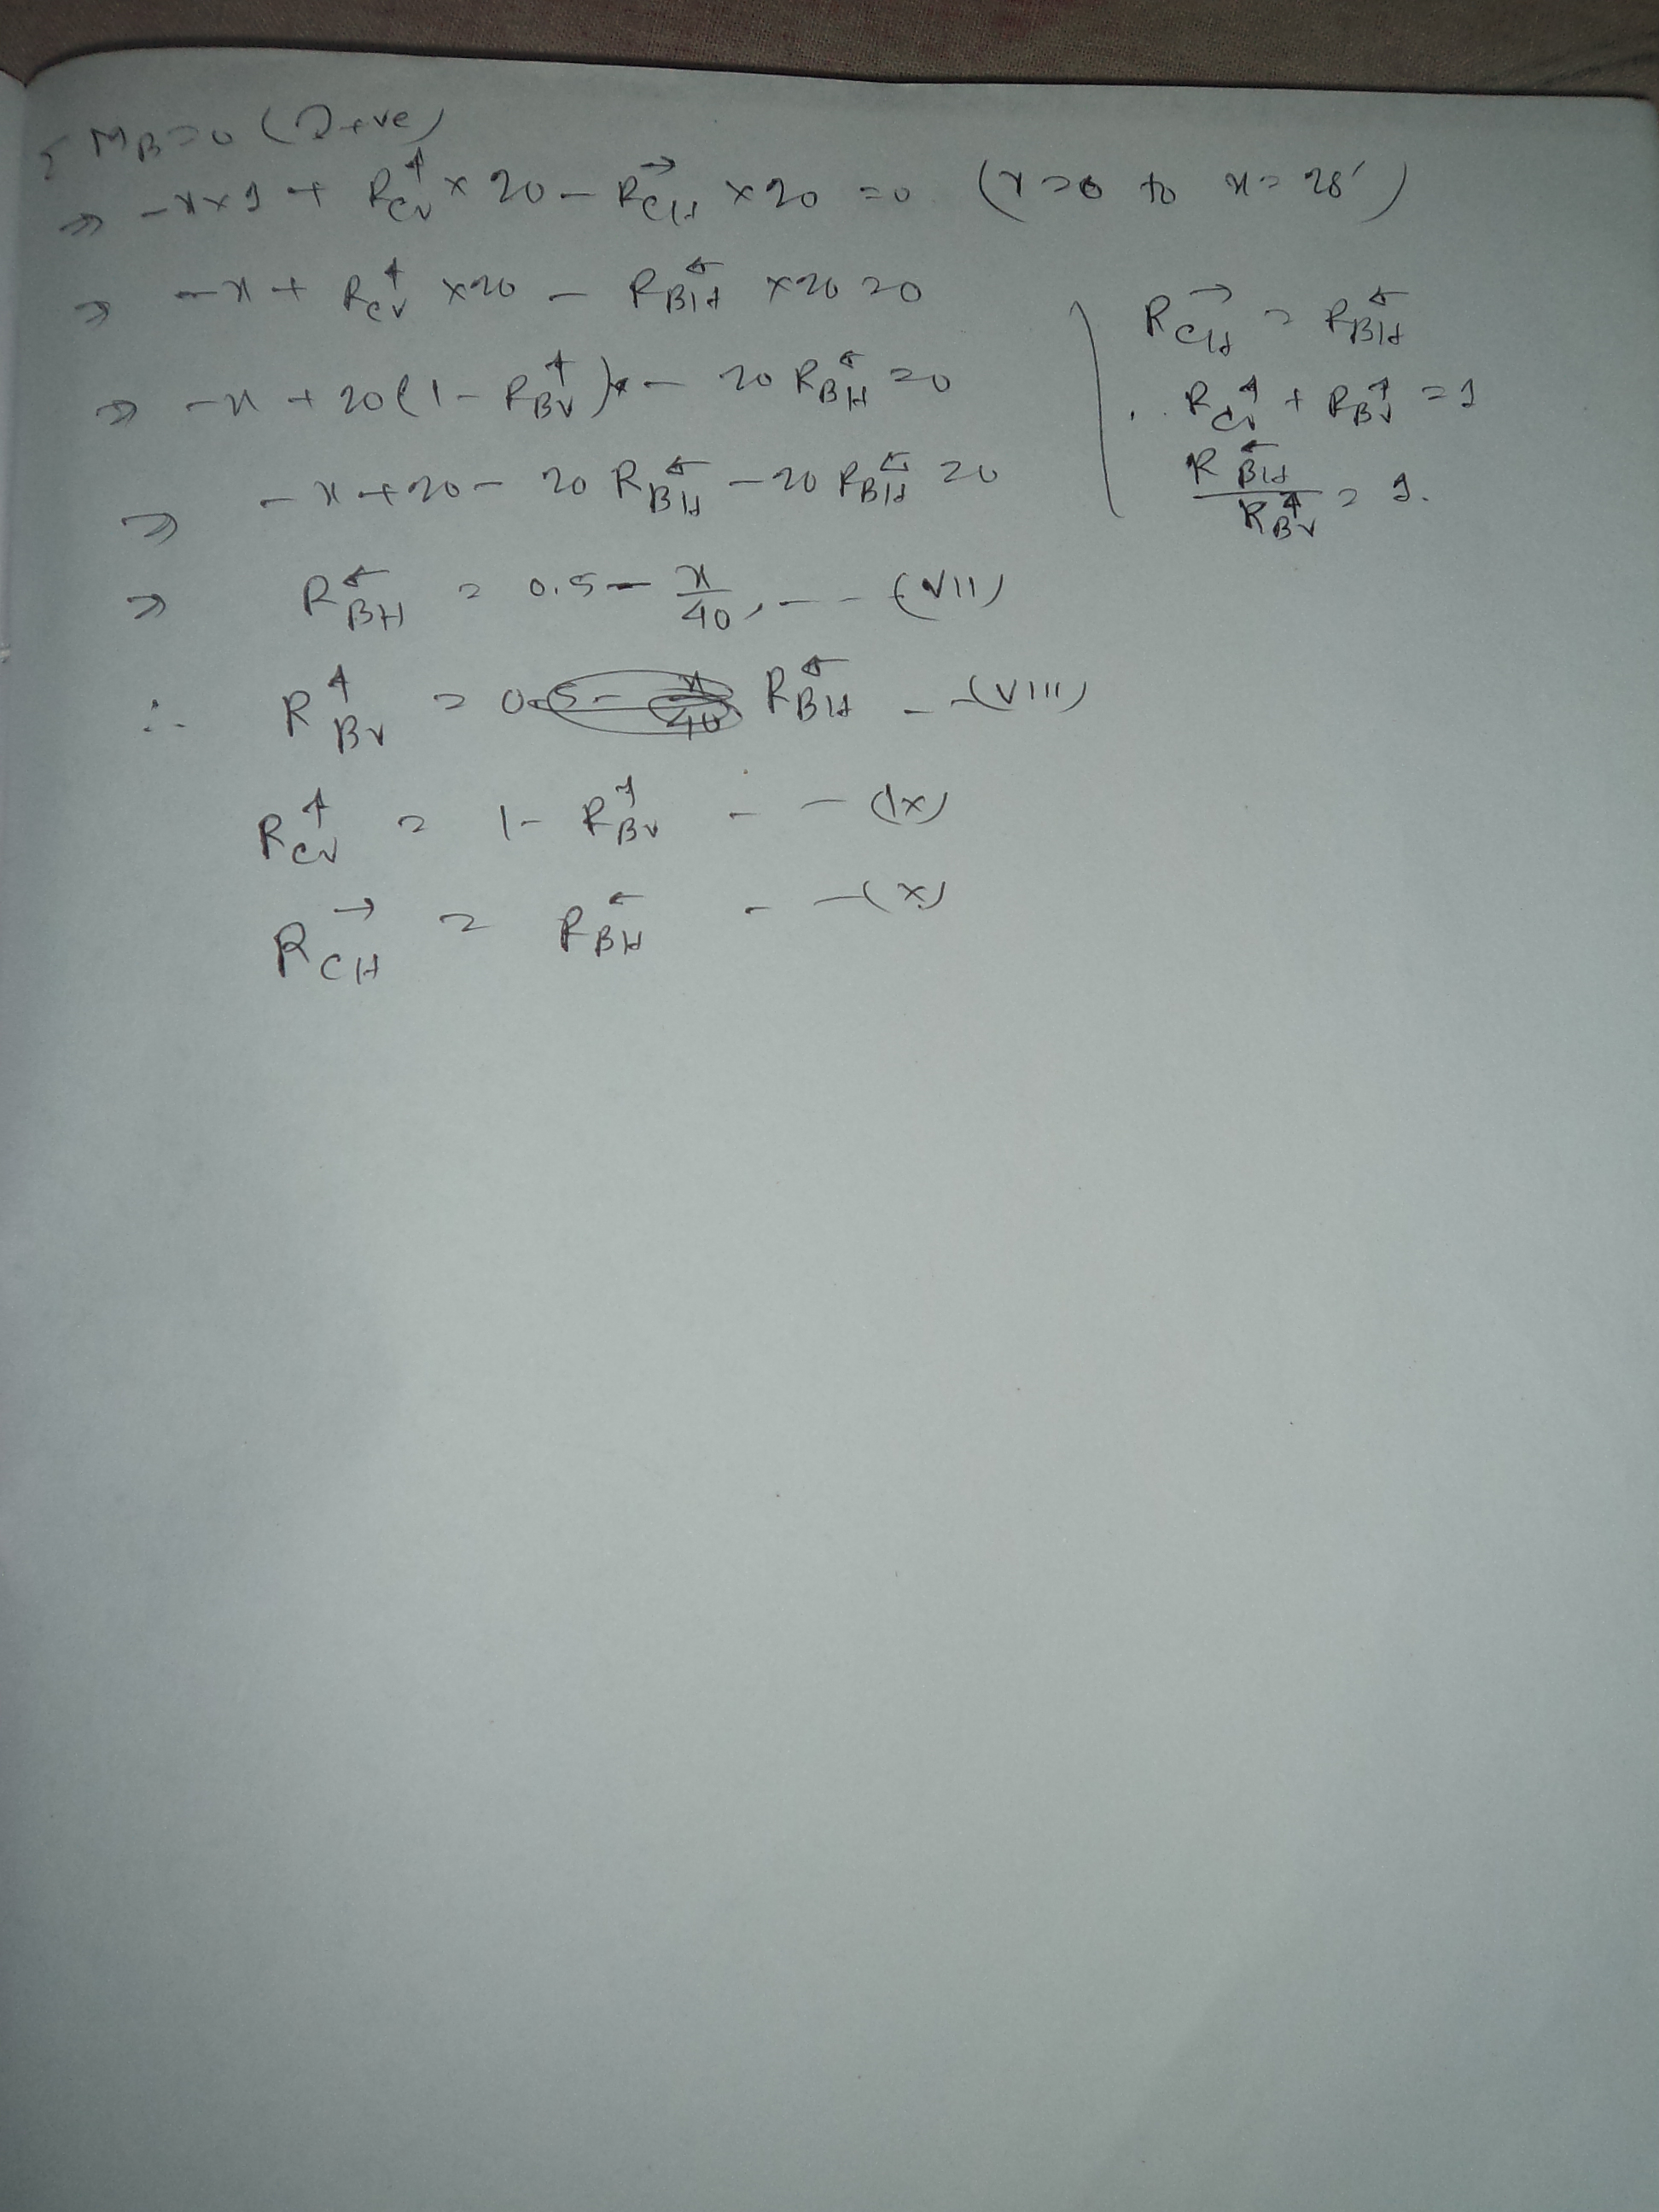 Σ M_B = 0 (↻ +ve)
⇒ -x×1 + R_CV↑ × 20 - R_CH→ × 20 = 0 (x=0 to x=28')
⇒ -x + R_CV↑ ×20 - R_BH← ×20 = 0
⇒ -x + 20(1 - R_BV↑) - 20 R_BH← = 0
⇒ -x + 20 - 20 R_BH← - 20 R_BH← = 0
⇒ R_BH← = 0.5 - x/40, -- - (VII)
∴ R_BV↑ = R_BH← - -(VIII)
R_CV↑ = 1 - R_BV↑ - - (IX)
R_CH→ = R_BH← - -(X)
R_CH→ = R_BH←
∴ R_CV↑ + R_BV↑ = 1
R_BH← / R_BV↑ = 1.